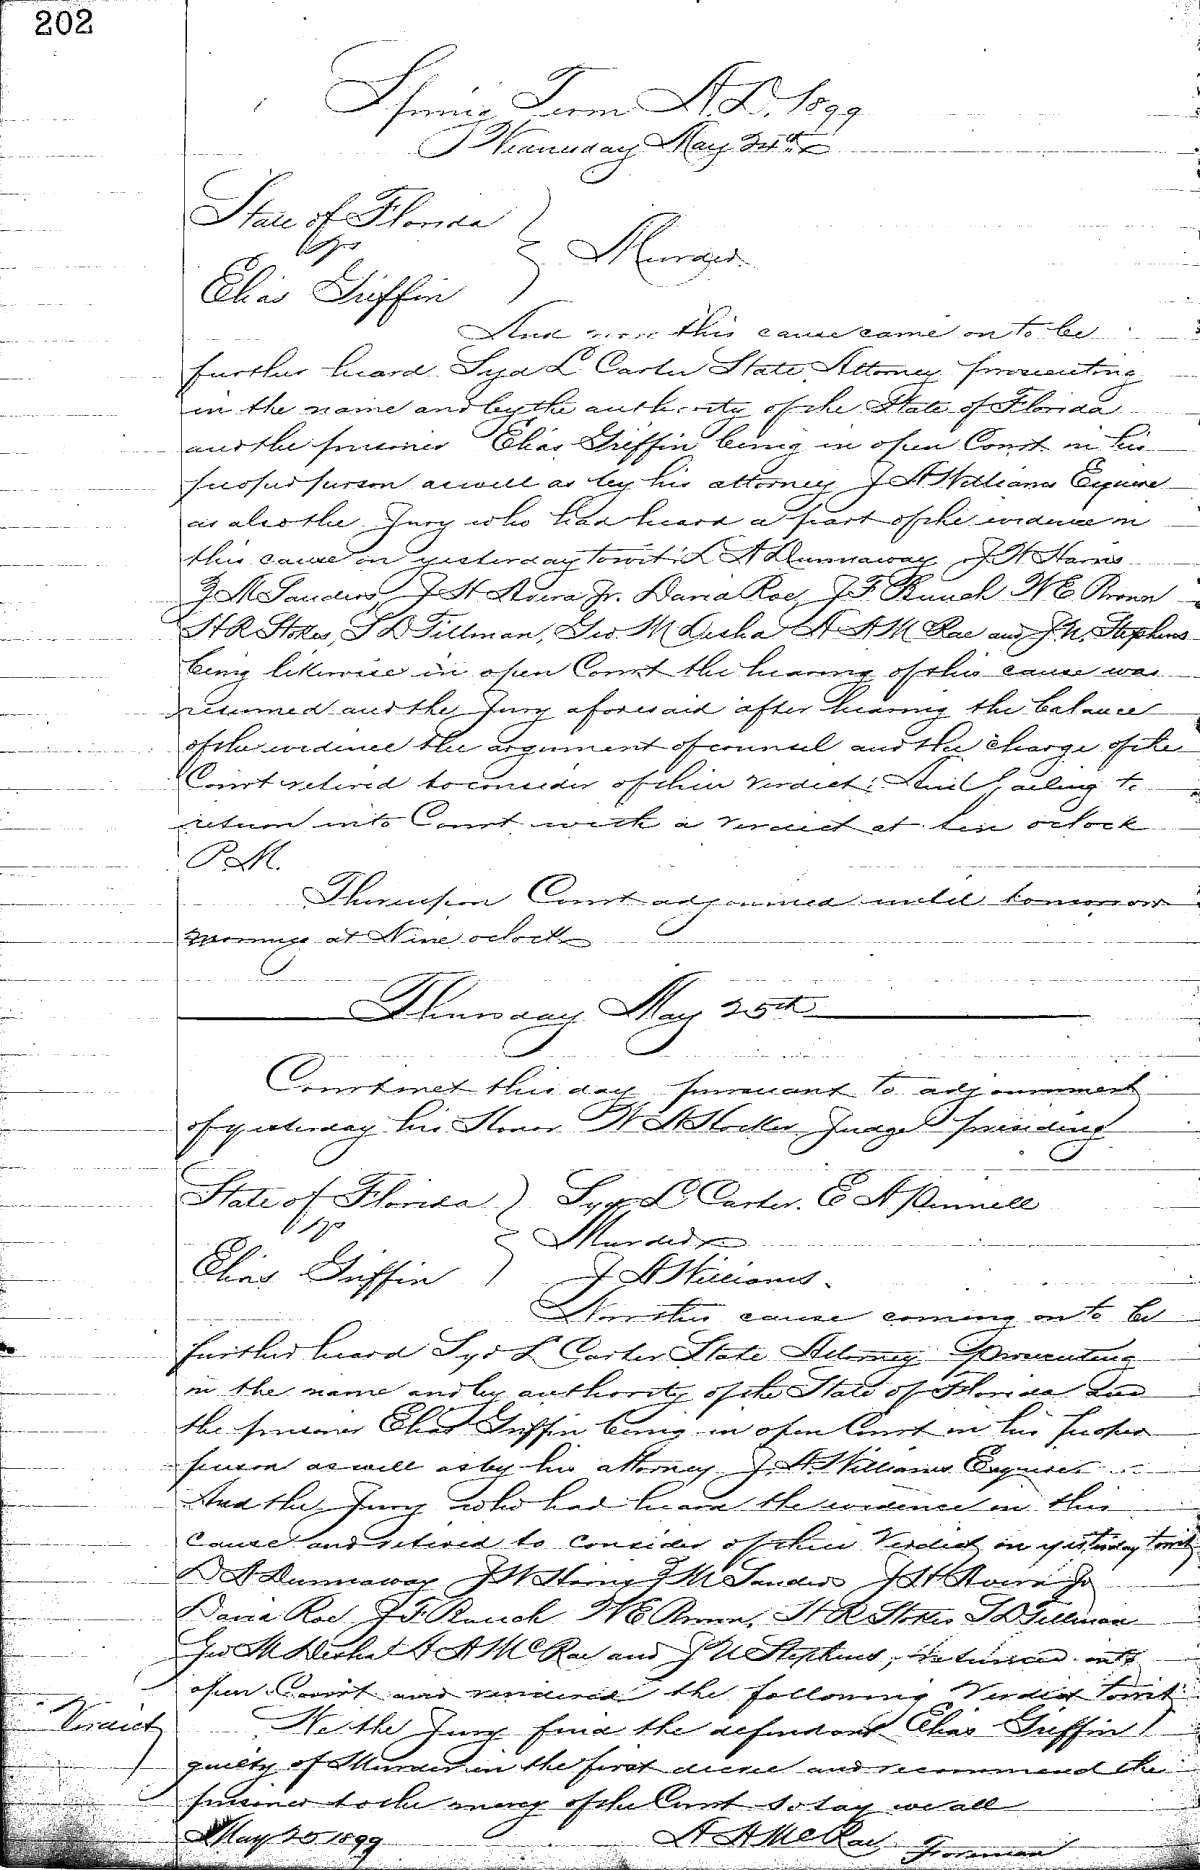 202
Spring Term A.D. 1899
Wednesday May 24th
State of Florida
vs
Murder
Elias Griffin
And now this cause came on to be
further heard Syd L Carter State Attorney prosecuting
in the name and by the authority of the State of Florida
and the prisoner Elias Griffin being in open Court in his
proper person as well as by his attorney J A Williams Esquire
as also the Jury who had heard a part of the evidence in
this cause on yesterday towit: L A Dunnaway J W Harris
Z M Sanders, J H Rvera Jr. David Roe, J F Ruach W E Brown
H R Stokes, T D Tillman, Geo M Lisha A A McRae and J N. Stephens
being likewise in open Court the hearing of this cause was
resumed and the Jury aforesaid after hearing the balance
of the evidence the argument of counsel and the charge of the
Court retired to consider of their verdict: And failing to
return into Court with a verdict at ten oclock
P.M.
Thereupon Court adjourned until tomorrow
morning at Nine oclock
Thursday May 25th
Court met this day pursuant to adjournment
of yesterday his Honor W A Hocker Judge presiding
State of Florida Syd L Carter. E A Pinnell
vs
Murder
Elias Griffin J A Williams.
Now this cause coming on to be
further heard Syd L Carter State Attorney prosecuting
in the name and by authority of the State of Florida and
the prisoner Elias Griffin being in open Court in his proper
person as well as by his attorney J. A. Williams Esquire
And the Jury who had heard the evidence in this
cause and retired to consider of their Verdict on yesterday towit
L A Dunnaway J W Harris Z M Sanders J H Rvera Jr
David Roe, J F Ruach W E Brown, H R Stokes T D Tillman
Geo M Lisha A A McRae and J N Stephens, returned into
open Court and rendered the following Verdict towit
Verdict
We the Jury find the defendant Elias Griffin
guilty of Murder in the first decree and recommend the
prisoner to the mercy of the Court so say we all
May 25 1899 A A McRae Foreman